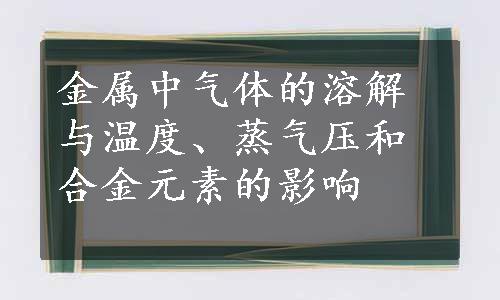 金属中气体的溶解
与温度、蒸气压和
合金元素的影响